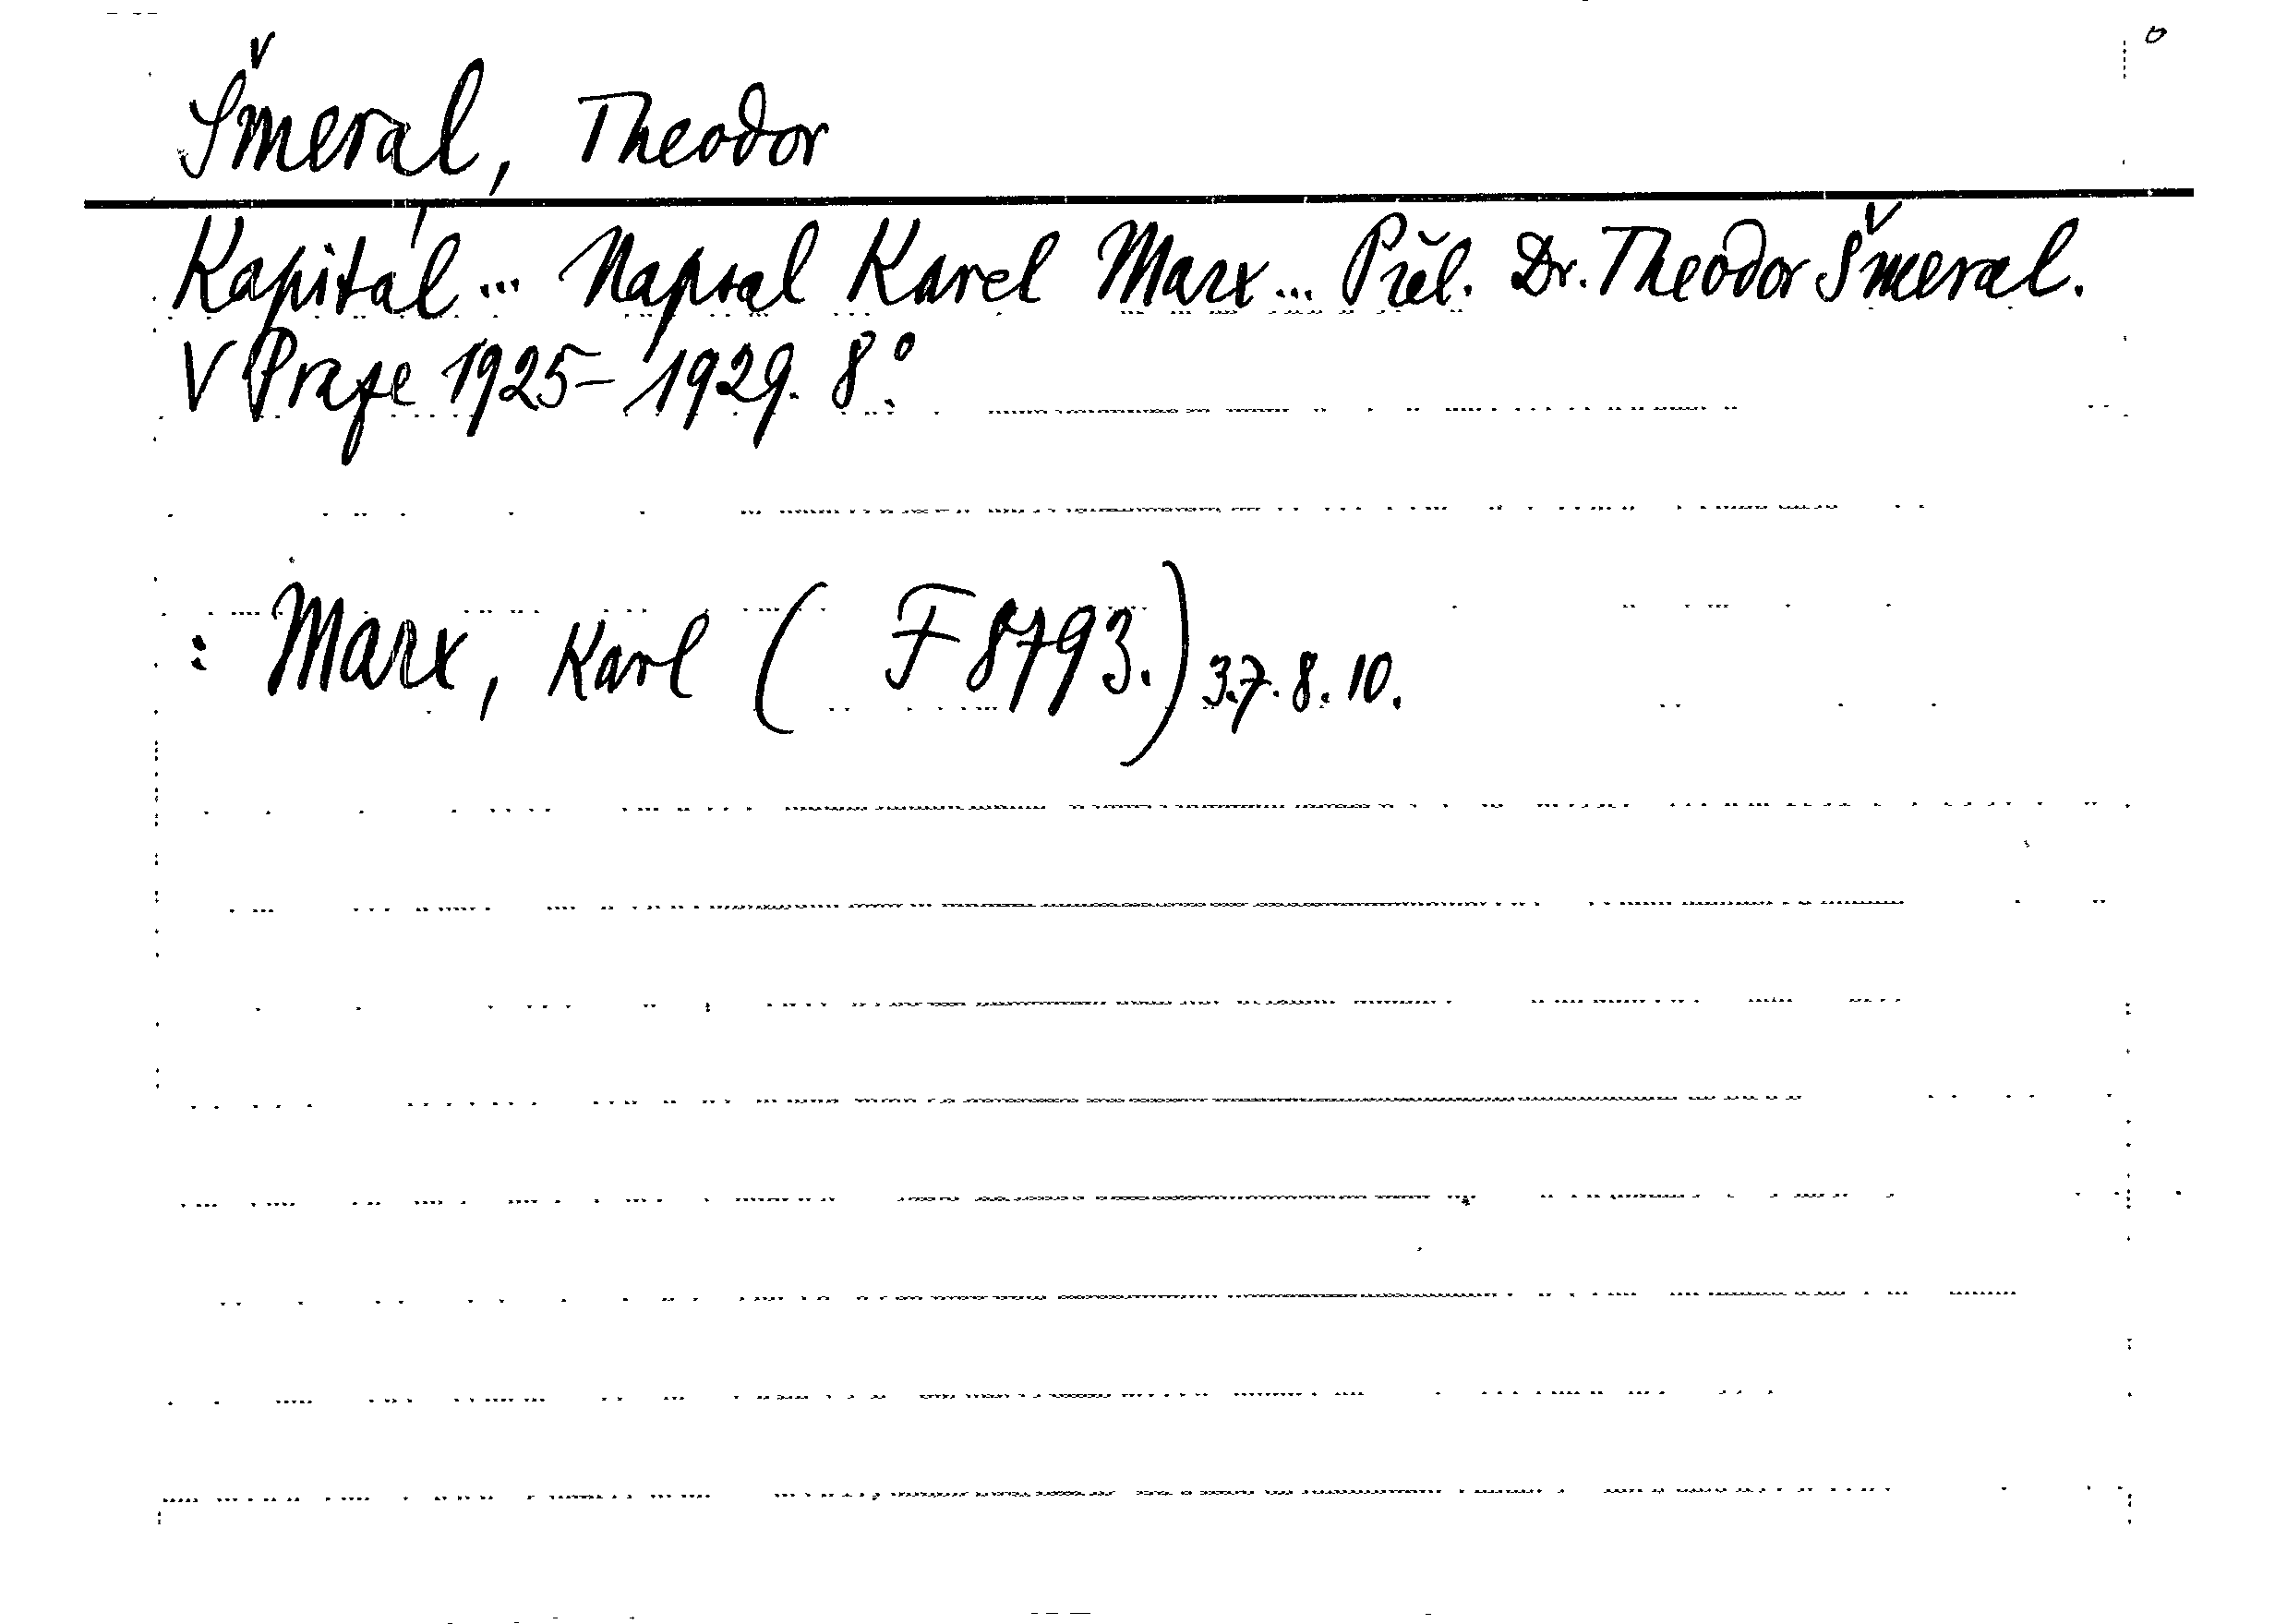 Šmeral, Theodor
Kapitál... Napsal Karel Marx... Přel. Dr. Theodor Šmeral.
V Praze 1925-1929. 8°.
: Marx, Karl ( F 8793.) 3.7.8.10.